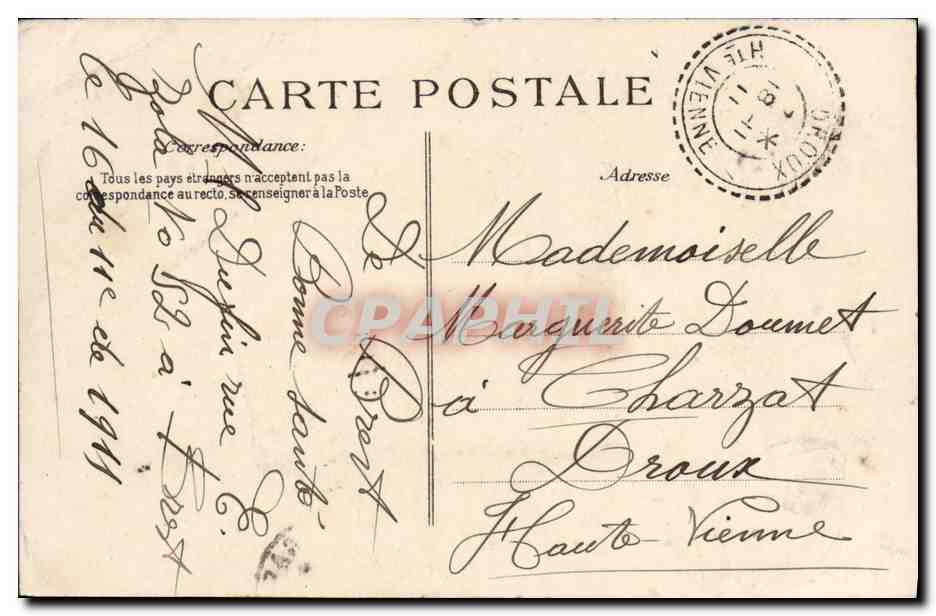 CARTE POSTALE
Correspondance:
Tous les pays étrangers n'acceptent pas la
correspondance au recto, se renseigner à la Poste
Adresse
DROUX
HTE VIENNE
18
11
De Brest
Bonne santé
Dufin rue E.
Zola No 52 à Brest
le 16 du 11e de 1911
Mademoiselle
Marguerite Doumet
à Charzat
Droux
Haute Vienne
CPAPHIL